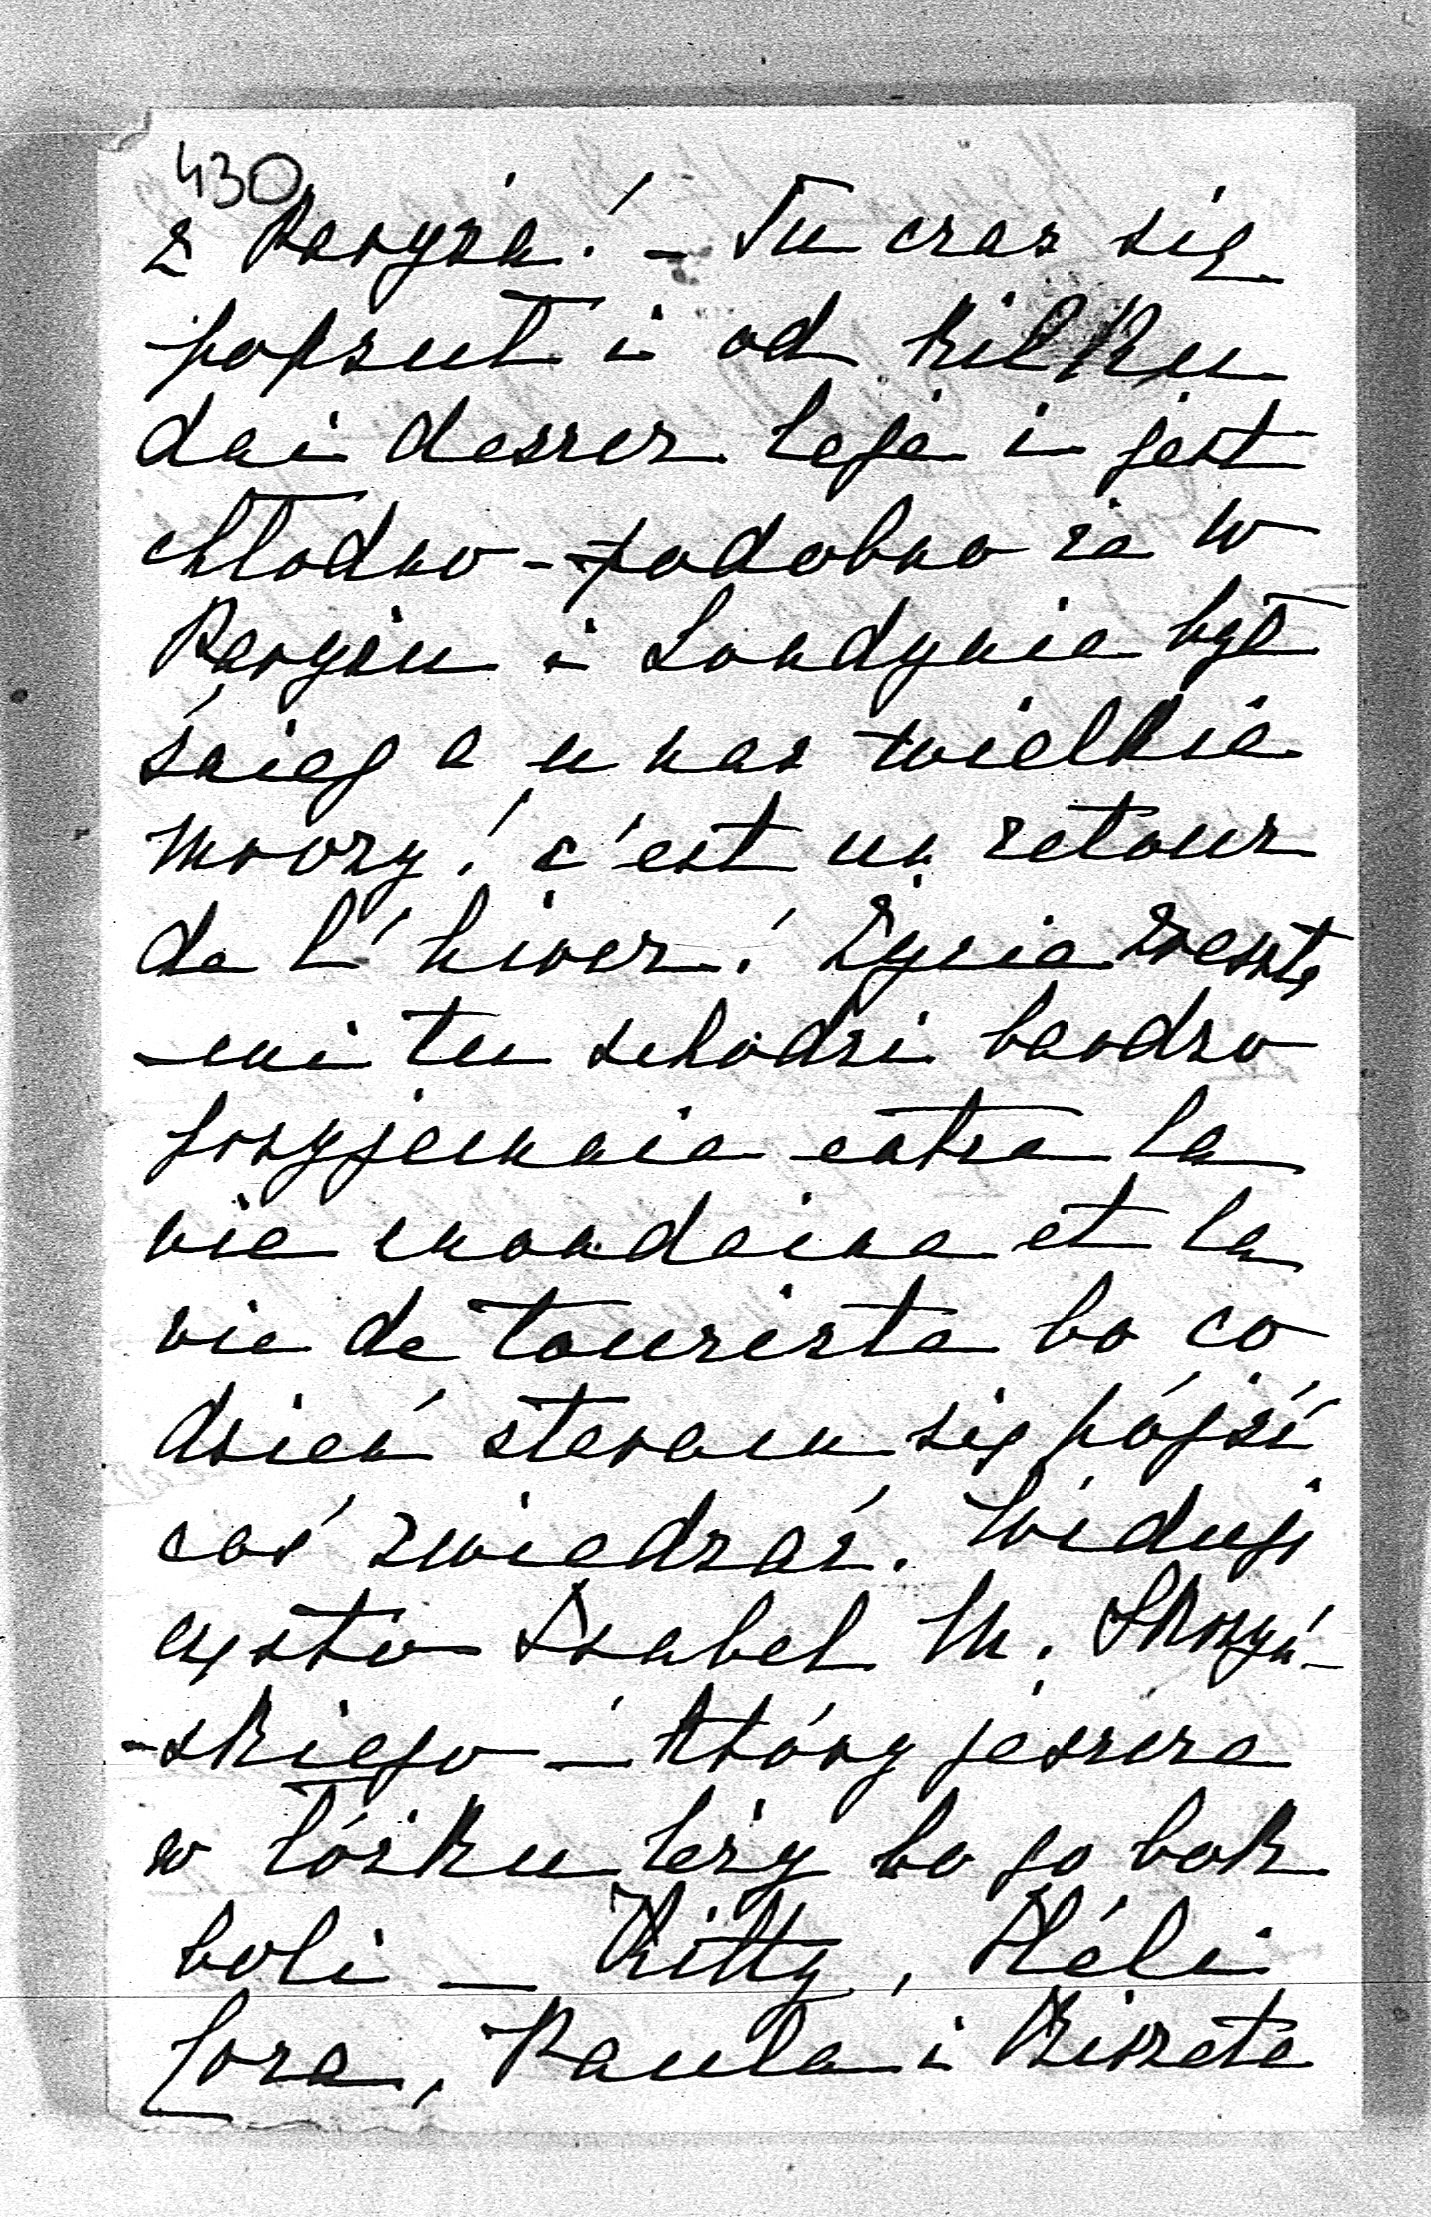 430
z Paryża! – Tu czas się
popsuł i od kilku
dni deszcz leje i jest
chłodno – podobno że w
Paryżu i Londynie był
śnieg a u nas wielkie
mrozy! c'est un retour
de l'hiver! Życie zresztą
-mi tu schodzi bardzo
przyjemnie entre la
vie mondaine et la
vie de touriste bo co
dzień staram się pójść
coś zwiedzać. Widuję
często Izabel M. Skrzyń-
-skiego – który jeszcze
w łóżku leży bo go bok
boli – Kitty, Héli
Paula i